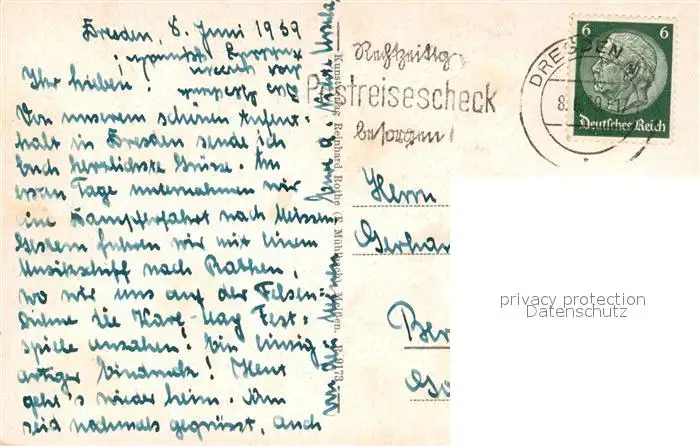 Dresden, 8. Juni 1939
Ihr Lieben!
Von unserem schönen Aufent-
halt in Dresden sende ich
Euch herrlichste Grüsse. Am
ersten Tage unternahmen wir
eine Dampferfahrt nach Meissen.
Gestern fuhren wir mit einem
Musikschiff nach Rathen,
wo wir uns auf der Felsen-
bühne die Karl-May Fest-
spiele ansahen! Ein einzig-
artiger Eindruck! Heut
geht's wieder heim. Nun
seid nochmals gegrüsst, auch
von den
Kunstverlag Reinhard Rothe (F. Mühlbach), Meißen.
Rechtzeitig
Postreisescheck
besorgen!
DRESDEN N
6 6
Deutsches Reich
Herrn
Gerhar
Ber
privacy protection
Datenschutz